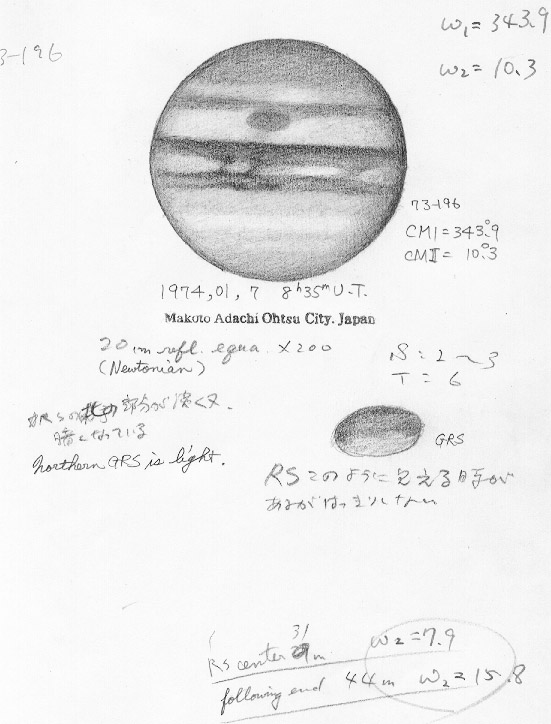 ω₁= 343.9
3-196
ω₂= 10.3
73-196
CMI=343.°9
CMII= 10.°3
1974,01,7 8ʰ35ᵐU.T.
Makoto Adachi Ohtsu City. Japan
20 cm refl. equa. X200
(Newtonian)
S: 2~3
T: 6
部分が淡く又
暗くなっている
GRS
northern GRS is light.
RSこのように見える時が
あるがはっきりしない
31
RS center m ω₂=7.9
following end 44m ω₂=15.8